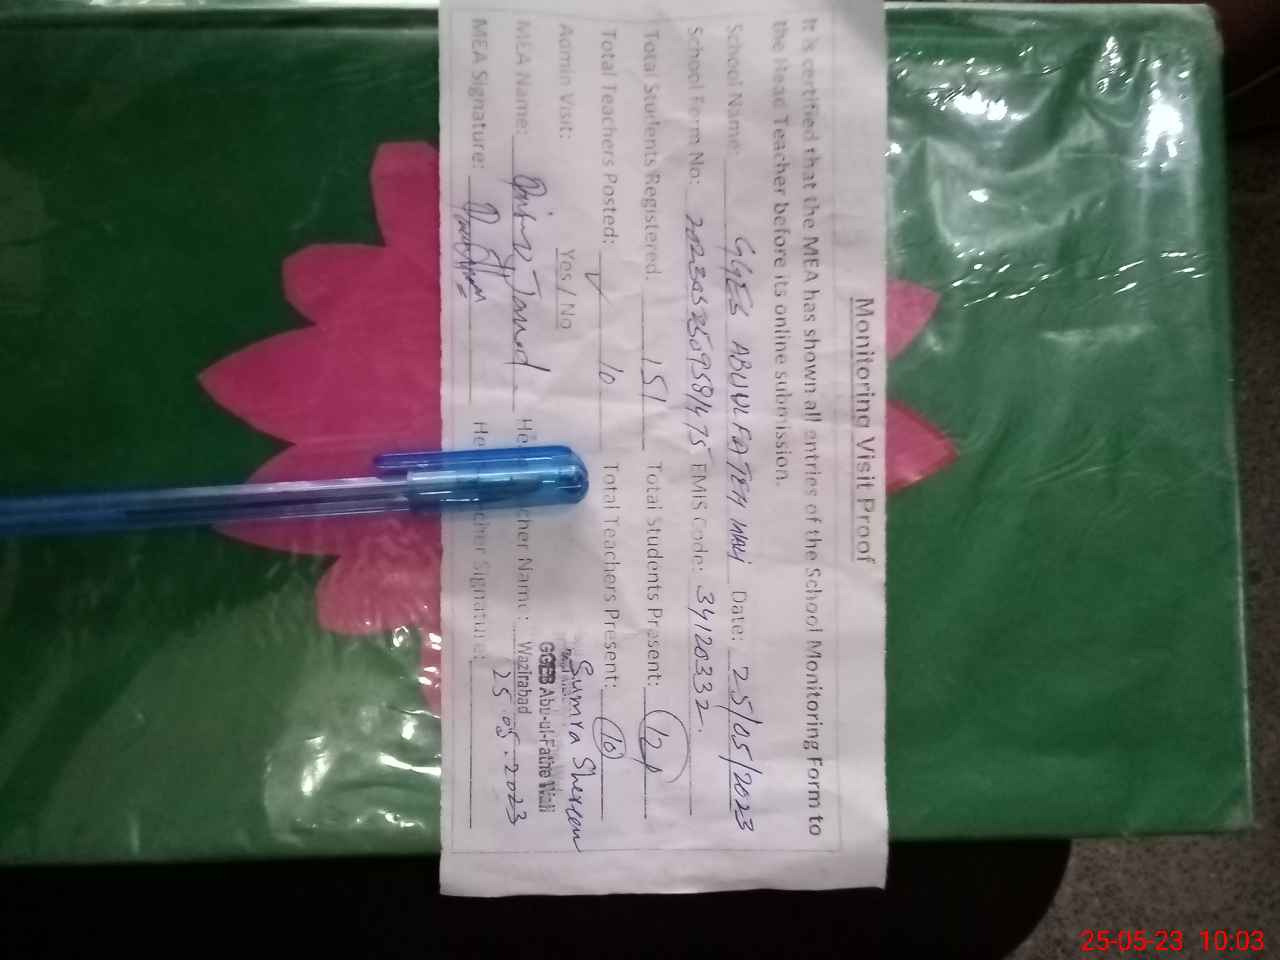 Monitoring Visit Proof
It is certified that the MEA has shown all entries of the School Monitoring Form to
the Head Teacher before its online submission.
School Name: GGES ABUUL FATEH WALI Date: 25/05/2023
School Form No: EMIS Code: 34120332.
Total Students Registered: 151 Total Students Present:
Total Teachers Posted: 10 Total Teachers Present: 10
Admin Visit: Yes / No Sumra Shereen
GGEB Abu-ul-Fathe Wali
MEA Name: cher Name: Wazirabad
MEA Signature: cher Signature: 25.05.2023
25-05-23 10:03